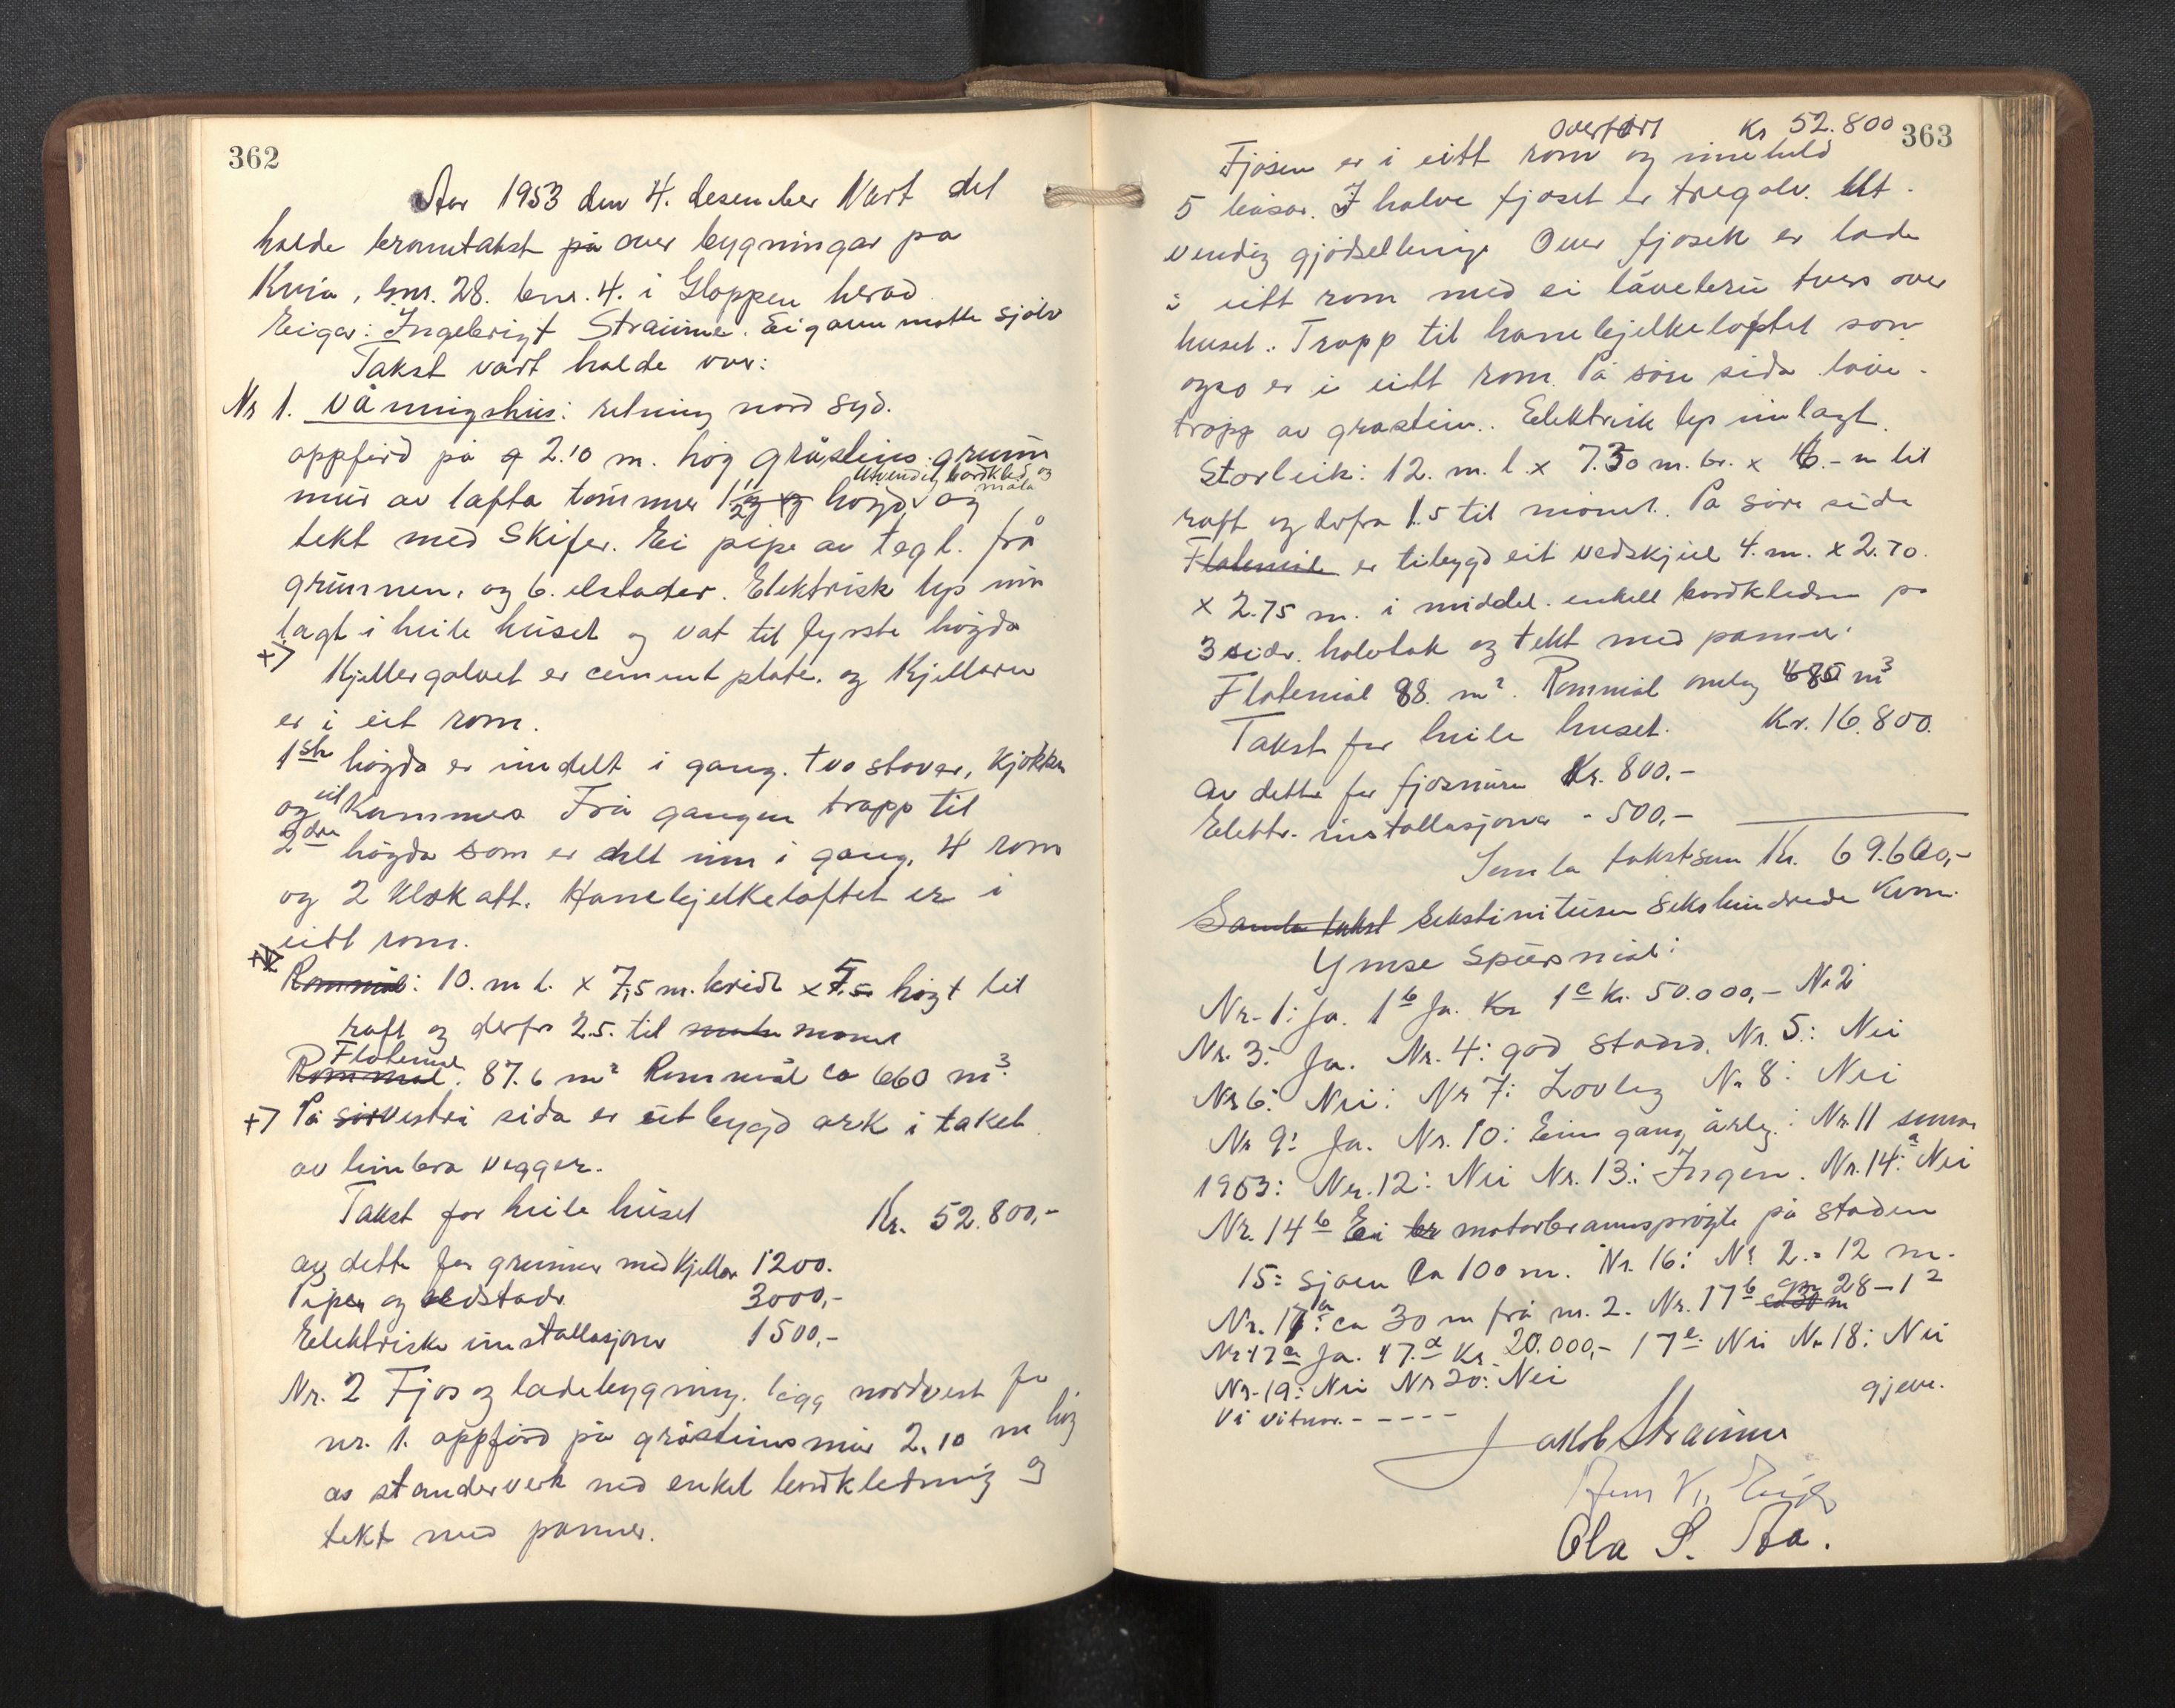 362
Aar 1953 den 4. desember Vart det
halde branntakst på over bygningar på
Kvia, gnr. 28. bnr. 4. i Gloppen herad
Eigar: Ingebrigt Straume. Eigaren møtte sjølv
Takst vart halde over:
Nr 1. Våningshus: retning nord syd.
oppførd på 2.10 m. høg gråsteins grunn
utvendig bordkled og
mur av lafta tømmer 1 1/2 høgd, og måla
tekt med Skifer. Ei pipe av tegl. frå
grunnen, og 6. elstader. Elektrisk lys inn
lagt i heile huset og vat til fyrste høgda
+> Kjellergolvet er cement plate. og Kjellaren
er i eit rom.
1ste høgda er inndelt i gang. tvo stover, kjøkken
og eit Kammes Frå gangen trapp til
2dre høgda som er delt inn i gang, 4 rom
og 2 kleskott. Hanebjelkeloftet er i
eitt rom.
Rommål: 10. m l. x 7,5 m. bridt x 5 høgt til
raft og derfra 2.5. til mønet
Flatemål
Rommål. 87.6 m² Rommål ca 660 m³.
+> På vestri sida er utbygd ark i taket
av binbra vegger.
Takst for heile huset Kr. 52.800,-
av dette for grunnur med Kjellar 1200.
Piper og eldstadr 3000,-
Elektriske installasjoner 1500,-
Nr. 2 Fjos og ladebygning. ligg nordvest for
nr. 1. oppførd på gråsteinsmur 2,10 m høg
av standerverk med enkel bordkledning og
tekt med panner.
363
Overført Kr 52.800
Fjosen er i eitt rom og inneheld
5 båsar. I halve fjoset er tregolv. Ut-
vendig gjødselbinge Over fjosen er lade
i eitt rom med ei låvebru tvers over
huset. Trapp til hanebjelkeloftet som
ogso er i eitt rom. På søre sida låve-
tropp av gråstein. Elektrisk lys innlagt.
Storleik: 12. m. l. x 7.30 m. br. x 6.- m til
raft og derfra 1.5 til mønet. På søre sida
Flatemål er tilbygd eit vedskjul 4. m. x 2.70.
x 2.75 m. i middel. enkell bordkledn på
3 sider. halvtak og tekt med panner.
Flatemål 98. m². Rommål omlag 680 m³
Takst for heile huset. Kr. 16.800.
av dette for fjosmuren Kr. 800.-
Elektr. installasjoner - 500,-
Samla takstsum Kr. 69.600,-
Samla takst Sekstinitusen sekshundrede Kroner.
Ymse Spursmål:
Nr. 1: Ja. 1b Ja. Kr 1c Kr. 50.000,- N. 2
Nr. 3: Ja. Nr. 4: god stand. Nr. 5: Nei
Nr 6: Nei: Nr 7: Lovleg Nr 8: Nei
Nr 9: Ja. Nr. 10: Ein gang årleg: Nr. 11 sumar
1953: Nr. 12: Nei Nr. 13: Ingen. Nr. 14a: Nei
Nr. 14b Ei br motorbrannsprøyte på staden
15: Sjøen Ca 100 m. Nr. 16: Nr 2. = 12 m.
Nr. 17a: ca 30 m frå nr. 2. Nr. 17b gnr 28-1²
Nr 17c Ja. 17.d Kr. 20.000,- 17e. Nei Nr 18: Nei
Nr. 19: Nei Nr 20: Nei gjeve.
Vi vitnar - - - - -
Jakob Straume
Ola S. Aa.